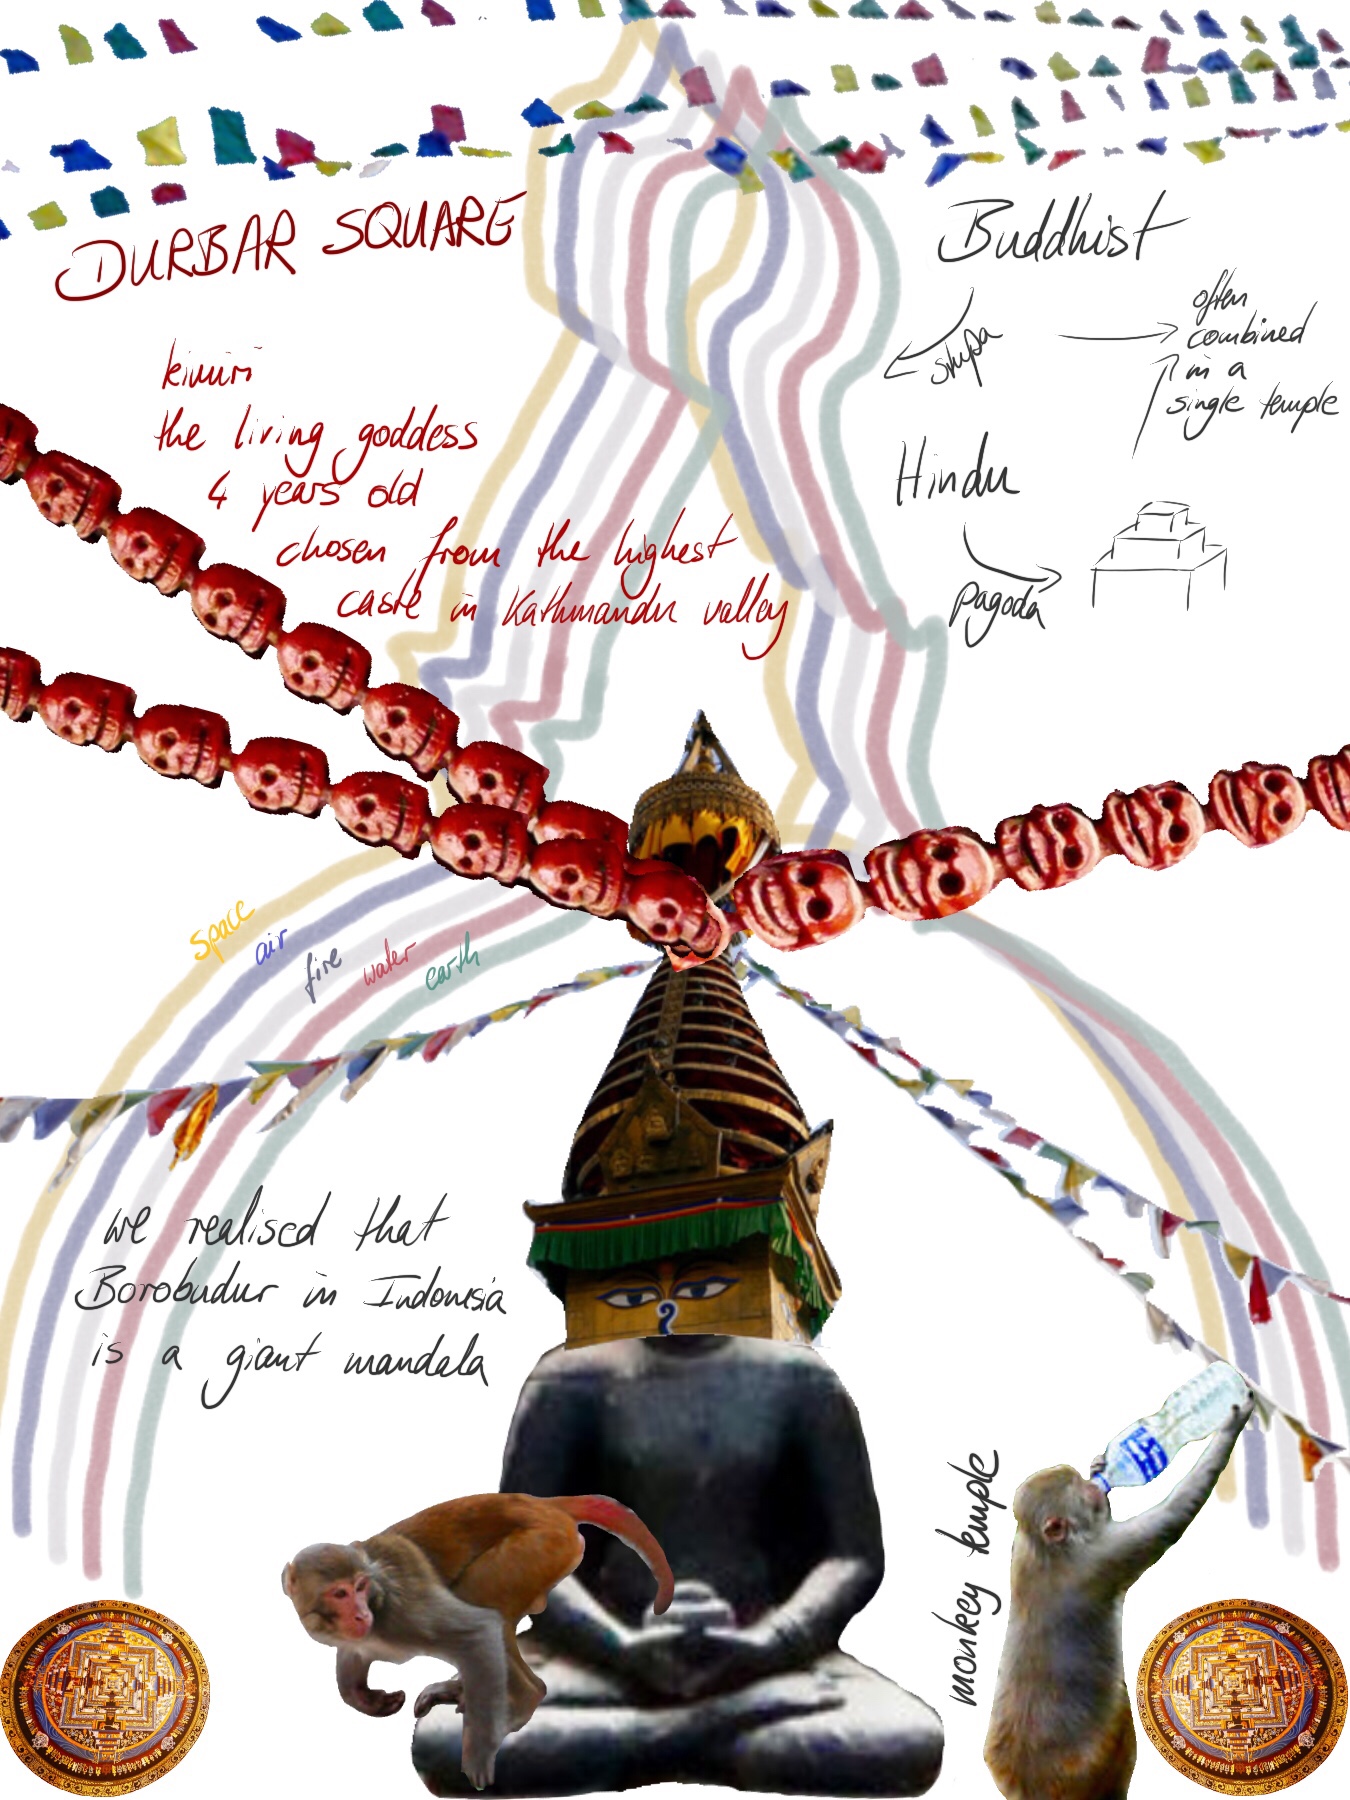 DURBAR SQUARE
kimiri
the living goddess
4 years old
chosen from the highest
caste in Kathmandu valley
Buddhist
stupa
often
combined
in a
single temple
Hindu
pagoda
space
air
fire
water
earth
we realised that
Borobudur in Indonesia
is a giant mandala
monkey temple